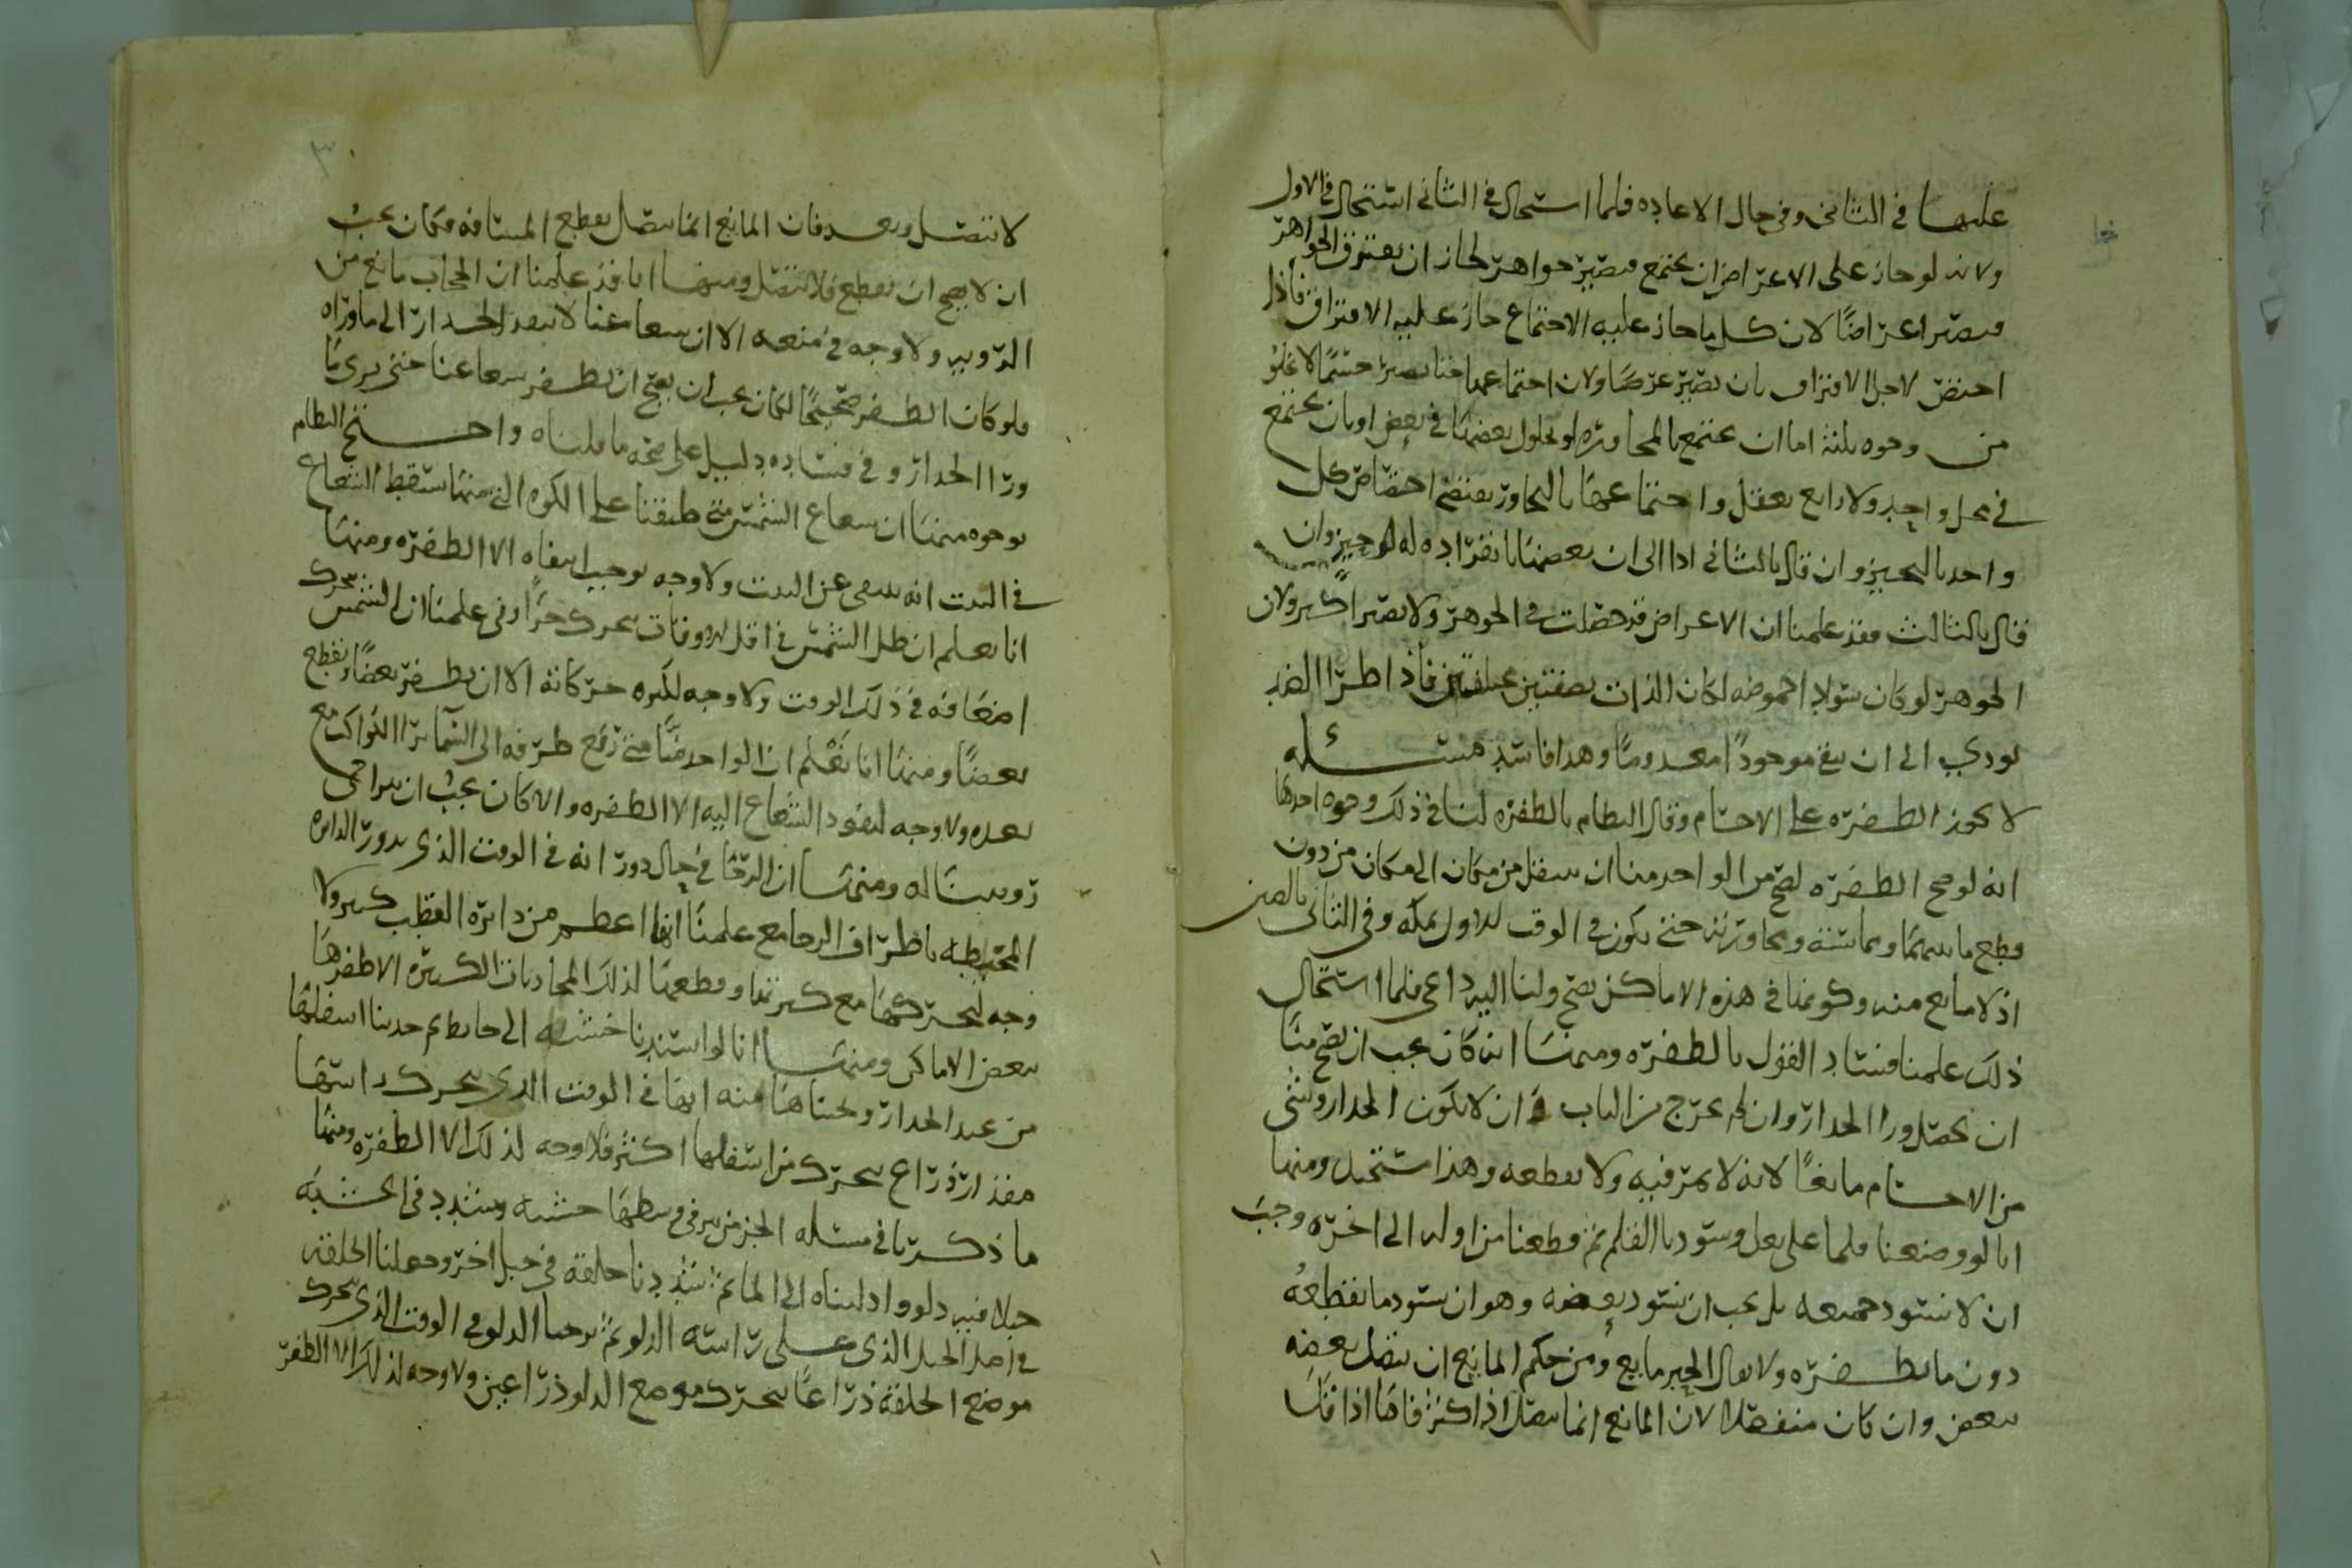 عليها في الثاني وفي حال الاعاده فلما استحال في الثاني استحال في الاول
ولانه لو جاز على الاعراض ان يجتمع فيصير جواهر لجاز ان يفترق الجواهر
فيصير اعراضا لان كل ما جاز عليه الاجتماع جاز عليه الافتراق فاذا
لاجل الافتراق بان يصير عرضا ولان اجتماعهما حتا يصير جسما لا يخلو
من وجوه ثلثة اما ان يجتمع بالمجاوره او بحلول بعضها في بعض او بان يجتمع
في محل واحد ولا رابع يعقل واجتماعها بالتجاور يقتضي اختصاص كل
واحد بالتحيز وان قال بالثاني ادا الى ان بعضها بانفراده له وان
قال بالثالث فقد علمنا ان الاعراض قد حصلت في الجوهر ولا يصير اكبر ولان
الجوهر لو كان سواد احموضه لكان الذات بصفتين مختلفتين فاذا طرا الضد
يودي الى ان يبقى موجودا معدوما وهذا فاسد مسئله
لا يجوز الطفره على الاجسام وقال النظام بالطفره لنا في ذلك وجوه احدها
انه لو صح الطفره لصح من الواحد منا ان ينتقل من مكان الى مكان من دون
قطع ما بينهما ومماسته ومجاوزته حتى يكون في الوقت الاول بمكه وفي الثاني بالصين
اذ لا مانع منه وكوننا في هذه الاماكن يصح ولنا اليه داعي فلما استحال
ذلك علمنا فساد القول بالطفره ومنها انه كان يجب ان يصح منا
ان نحصل ورا الجدار وان لم نخرج من الباب ان لا يكون الجدار وشي
من الاجسام مانعا لانه لا يمر فيه ولا يقطعه وهذا يستحيل ومنها
انا لو وضعنا قلما على نعل وسود بالقلم ثم قطعنا من اوله الى اخره وجب
ان لا يسود جميعه بل يجب ان يسود بعضه وهو ان يسود ما يقطعه
دون ما يطفره ولا يقال الحبر مايع ومن حكم المايع ان يتصل بعضه
ببعض وان كان منفصلا لان المايع انما يتصل اذا كثر فاما اذا قل
لا يتصل وبعد فان المايع انما يتصل بقطع المسافه فكان يجب
ان لا يصح ان يقطع فلا يتصل ومنها انا قد علمنا ان الحجاب مانع من
الرويه ولا وجه في منعه الا ان شعاعنا لا ينفد الجدار الى ما وراه
فلو كان الطفر صحيحا لكان يجب ان يصح ان يطفر شعاعنا حتى يرى ما
ورا الجدار وفي فساده دليل على صحه ما قلناه واحتج النظام
بوجوه منها ان شعاع الشمس متى طبقنا على الكوه التي منها سقط الشعاع
في البيت انه ينتفي عن البيت ولا وجه يوجب انتفاه الا الطفره ومنها
انا نعلم ان ظل الشمس في اقل الاوقات يتحرك جزا وفي علمنا ان الشمس تتحرك
اضعافه في ذلك الوقت ولا وجه لكثره حركاته الا ان يطفر بعضا ويقطع
بعضا ومنها انا نعلم ان الواحد منا متى رفع طرفه الى السما يرا الكواكب مع
بعده ولا وجه لنفود الشعاع اليه الا الطفره والا كان يجب ان يتراخى
رويتنا له ومنها ان الرحا في حال دورانه في الوقت الذي يدور الدايره
المحيطه باطراف الرحا مع علمنا انها اعظم من دايره القطب كثير ولا
وجه لتحركها مع كبرتها وقطعها لذلك المحاذيات الكثيره الا طفرها
ببعض الاماكن ومنها انا لو اسندنا خشبه الى حايط ثم جذبنا اسفلها
من عند الجدار ونحيناها منه انها في الوقت الذي يتحرك راسها
مقدار ذراع يتحرك من اسفلها اكثر فلا وجه لذلك الا الطفره ومنها
ما ذكرنا في مسئله الجز من بير في وسطها خشبه ويشدد في الخشبه
حبلا فيه دلو وادليناه الى الما ثم شددنا حلقه في حبل اخر وجعلنا الحلقه
في اصل الحبل الذي على راسه الدلو ثم نزحنا الدلو في الوقت الذي يتحرك
موضع الحلقه ذراعا يتحرك موضع الدلو ذراعين ولا وجه لذلك الا الطفر